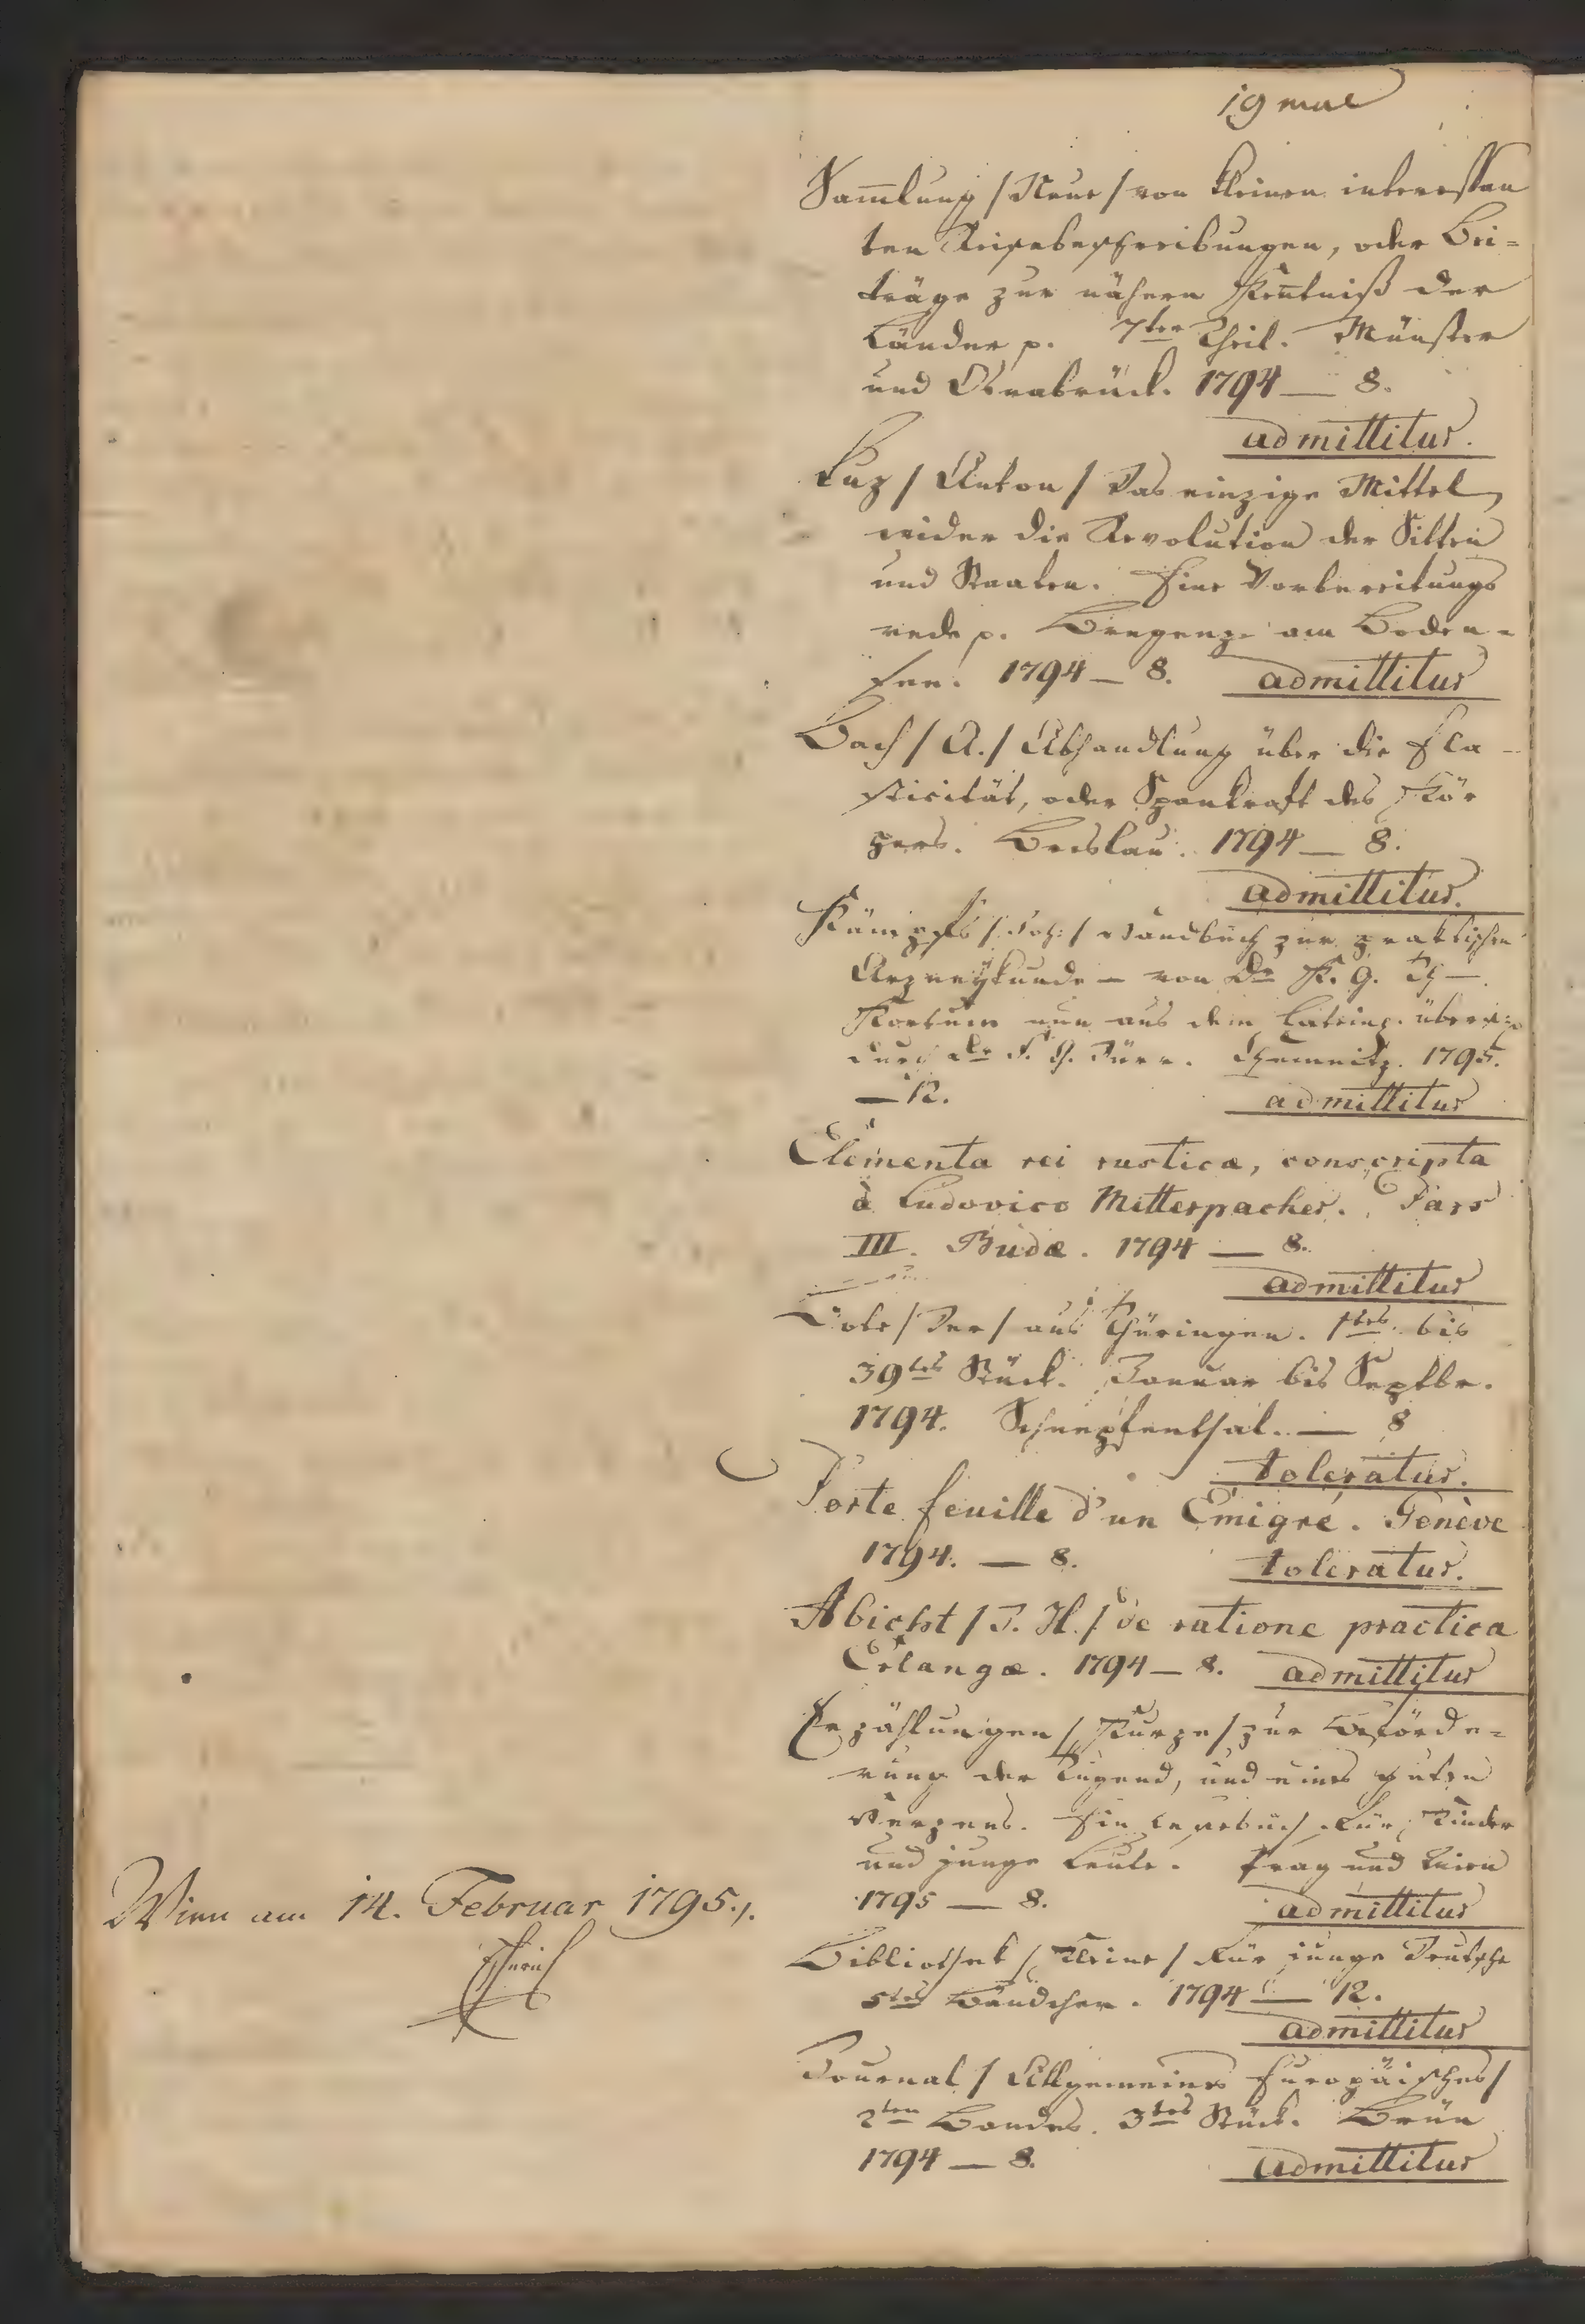 19 mae
Sam̄lung / Neue / von kleinen interessan
ten Reisebeschreibungen, oder Bei=
träge zur nähern Keñtniß der
Länder p. 7ter Theil. Münster
und Osnabrück. 1794 — 8.
admittitur.
Luz / Anton / Das einzige Mittel
wider die Revolution der Sitten
und Staaten. Eine Vorbereitungs
rede p. Bregenz am Boden=
see. 1794 — 8. admittitur
Bach / A. / Abhandlung über die Ela=
sticität, oder Spankraft des Kör
pers. Breslau. 1794 — 8.
admittitur.
Kämpfs / Joh: / Handbuch zur praktischen
Arzneykunde — von Dr K. G. Th —
Kortum nun aus dem Latein. übers.
durch Dr F. G. Dürr. Chemnitz. 1795.
— 12. admittitur
Elementa rei rusticæ, conscripta
à Ludovico Mitterpacher. Pars
III. Budæ. 1794 — 8.
admittitur
Bote / Der / aus Thüringen. 1tes bis
39tes Stück. Januar bis Septbr.
1794. Schnepfenthal. — 8
toleratur.
Porte feuille d'un Emigré. Genève
1794. — 8. toleratur.
Abicht / J. H. / de ratione practica
Erlangæ. 1794 — 8. admittitur
Erzählungen / Kurze / zur Beförde=
rung der Tugend, und eines guten
Herzens. Ein Lesebuch für Kinder
und junge Leute. Prag und Wien
1795 — 8. admittitur
Bibliothek / Kleine / für junge Deutsche
5tes Bändchen. 1794 — 12.
admittitur
Journal / Allgemeines Europäisches /
2ten Bandes. 3tes Stück. Brün
1794 — 8. admittitur
Wien am 14. Februar 1795./.